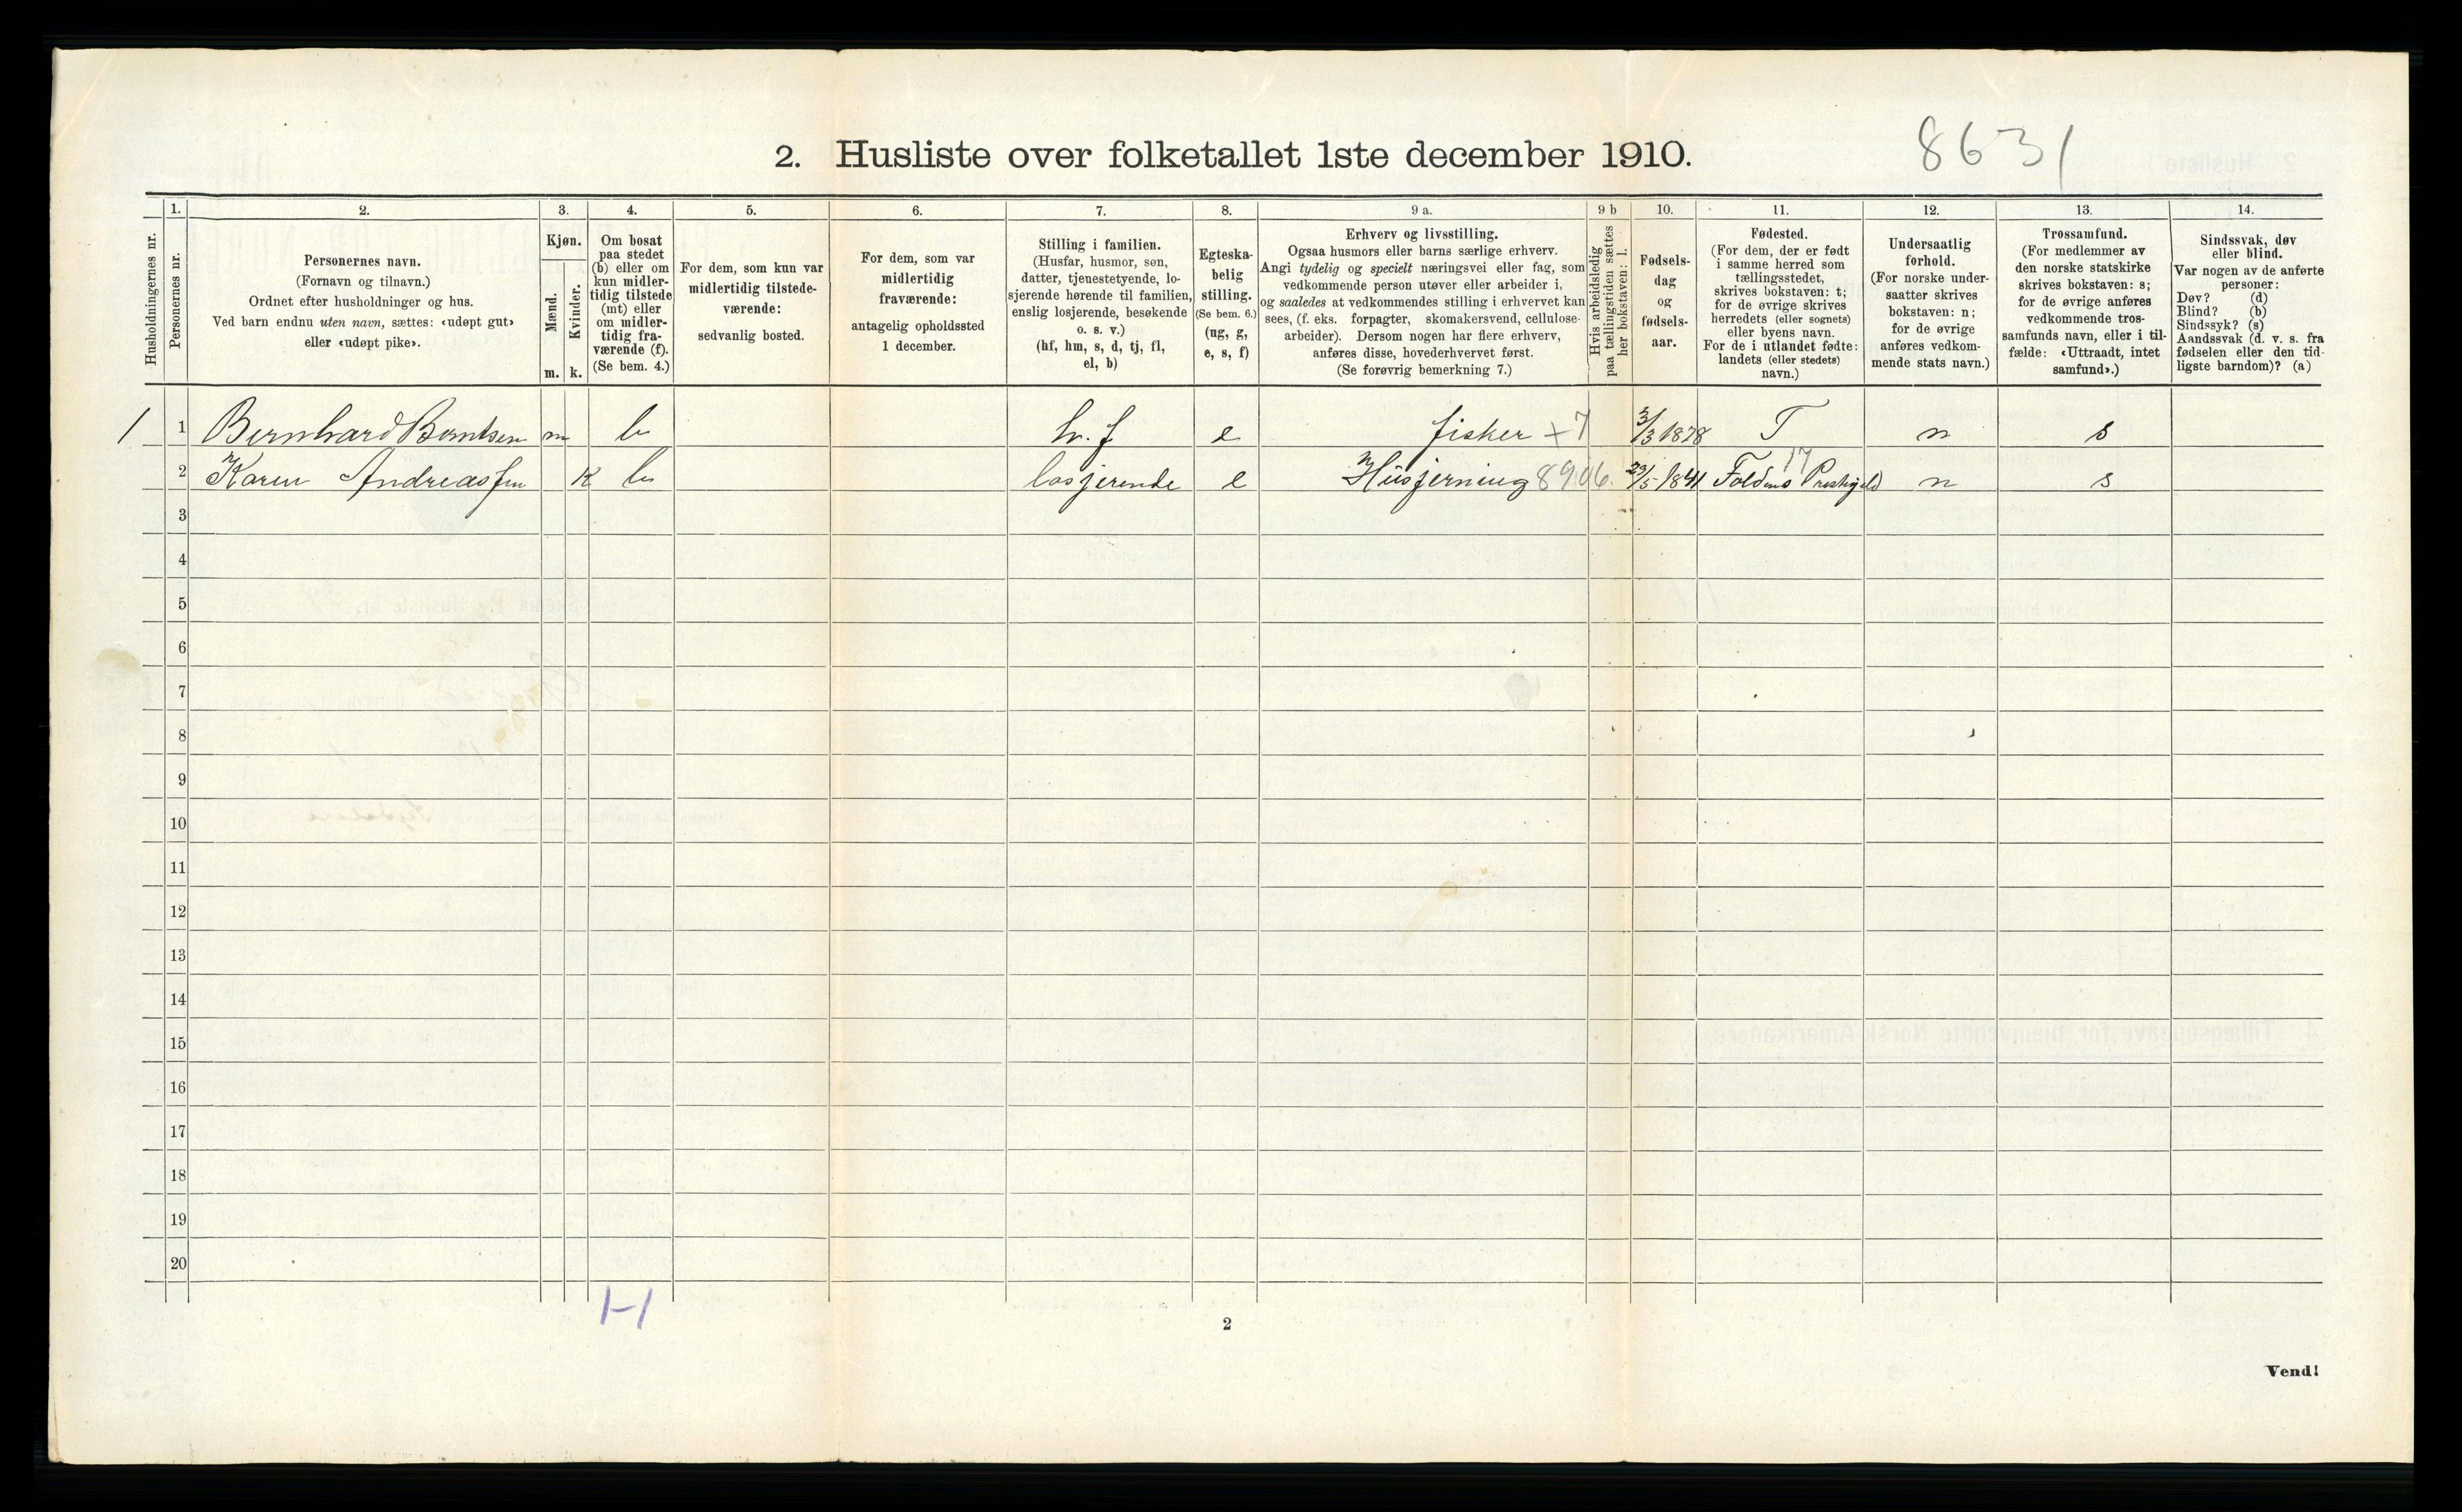 8631
2. Husliste over folketallet 1ste december 1910.
Husholdningernes nr.
1.
Personernes nr.
2.
Personernes navn.
(Fornavn og tilnavn.)
Ordnet efter husholdninger og hus.
Ved barn endnu uten navn, sættes: «udøpt gut»
eller «udøpt pike».
3.
Kjøn.
Mænd.
Kvinder.
m. k.
4.
Om bosat
paa stedet
(b) eller om
kun midler-
tidig tilstede
(mt) eller
om midler-
tidig fra-
værende (f).
(Se bem. 4.)
5.
For dem, som kun var
midlertidig tilstede-
værende:
sedvanlig bosted.
6.
For dem, som var
midlertidig
fraværende:
antagelig opholdssted
1 december.
7.
Stilling i familien.
(Husfar, husmor, søn,
datter, tjenestetyende, lo-
sjerende hørende til familien,
enslig losjerende, besøkende
o. s. v.)
(hf, hm, s, d, tj, fl,
el, b)
8.
Egteska-
belig
stilling.
(Se bem. 6.)
(ug, g,
e, s, f)
9 a.
Erhverv og livsstilling.
Ogsaa husmors eller barns særlige erhverv.
Angi tydelig og specielt næringsvei eller fag, som
vedkommende person utøver eller arbeider i,
og saaledes at vedkommendes stilling i erhvervet kan
sees, (f. eks. forpagter, skomakersvend, cellulose-
arbeider). Dersom nogen har flere erhverv,
anføres disse, hovederhvervet først.
(Se forøvrig bemerkning 7.)
9 b
Hvis arbeidsledig
paa tællingstiden sættes
her bokstaven: l.
10.
Fødsels-
dag
og
fødsels-
aar.
11.
Fødested.
(For dem, der er født
i samme herred som
tællingsstedet,
skrives bokstaven: t;
for de øvrige skrives
herredets (eller sognets)
eller byens navn.
For de i utlandet fødte:
landets (eller stedets)
navn.)
12.
Undersaatlig
forhold.
(For norske under-
saatter skrives
bokstaven: n;
for de øvrige
anføres vedkom-
mende stats navn.)
13.
Trossamfund.
(For medlemmer av
den norske statskirke
skrives bokstaven: s;
for de øvrige anføres
vedkommende tros-
samfunds navn, eller i til-
fælde: «Uttraadt, intet
samfund».)
14.
Sindssvak, døv
eller blind.
Var nogen av de anførte
personer:
Døv? (d)
Blind? (b)
Sindssyk? (s)
Aandssvak (d. v. s. fra
fødselen eller den tid-
ligste barndom)? (a)
1 1 Bernhard Berntsen m b h. f e fisker + 7 3/3 1878 T n s
2 Karen Andreassen K b losjerende e Husjerning 8906. 29/5 1841 Foldens Prestgjeld 17 n s
3
4
5
6
7
8
9
10
11
12
13
14
15
16
17
18
19
20
1-1
2
Vend!